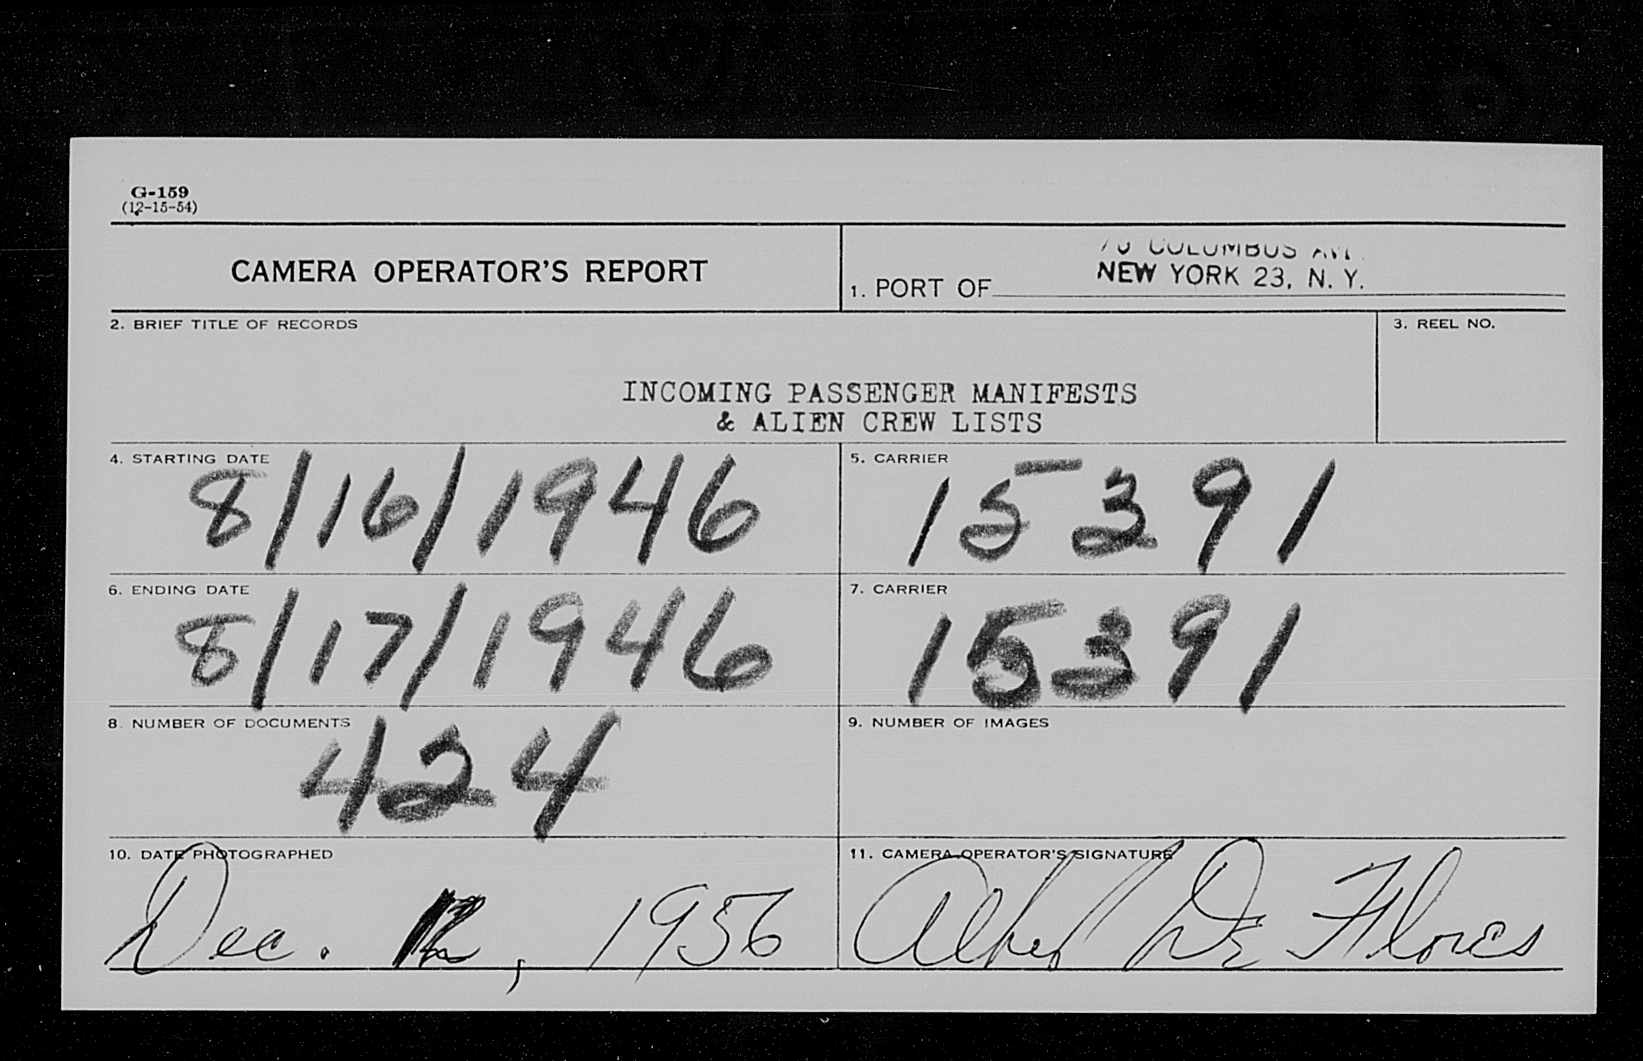 G-159
(12-15-54)
CAMERA OPERATOR'S REPORT
70 COLUMBUS AVE.
NEW YORK 23, N. Y.
1. PORT OF
2. BRIEF TITLE OF RECORDS
3. REEL NO.
INCOMING PASSENGER MANIFESTS
& ALIEN CREW LISTS
4. STARTING DATE
8/16/1946
5. CARRIER
15391
6. ENDING DATE
8/17/1946
7. CARRIER
15391
8. NUMBER OF DOCUMENTS
424
9. NUMBER OF IMAGES
10. DATE PHOTOGRAPHED
Dec. 12, 1956
11. CAMERA OPERATOR'S SIGNATURE
De Flores